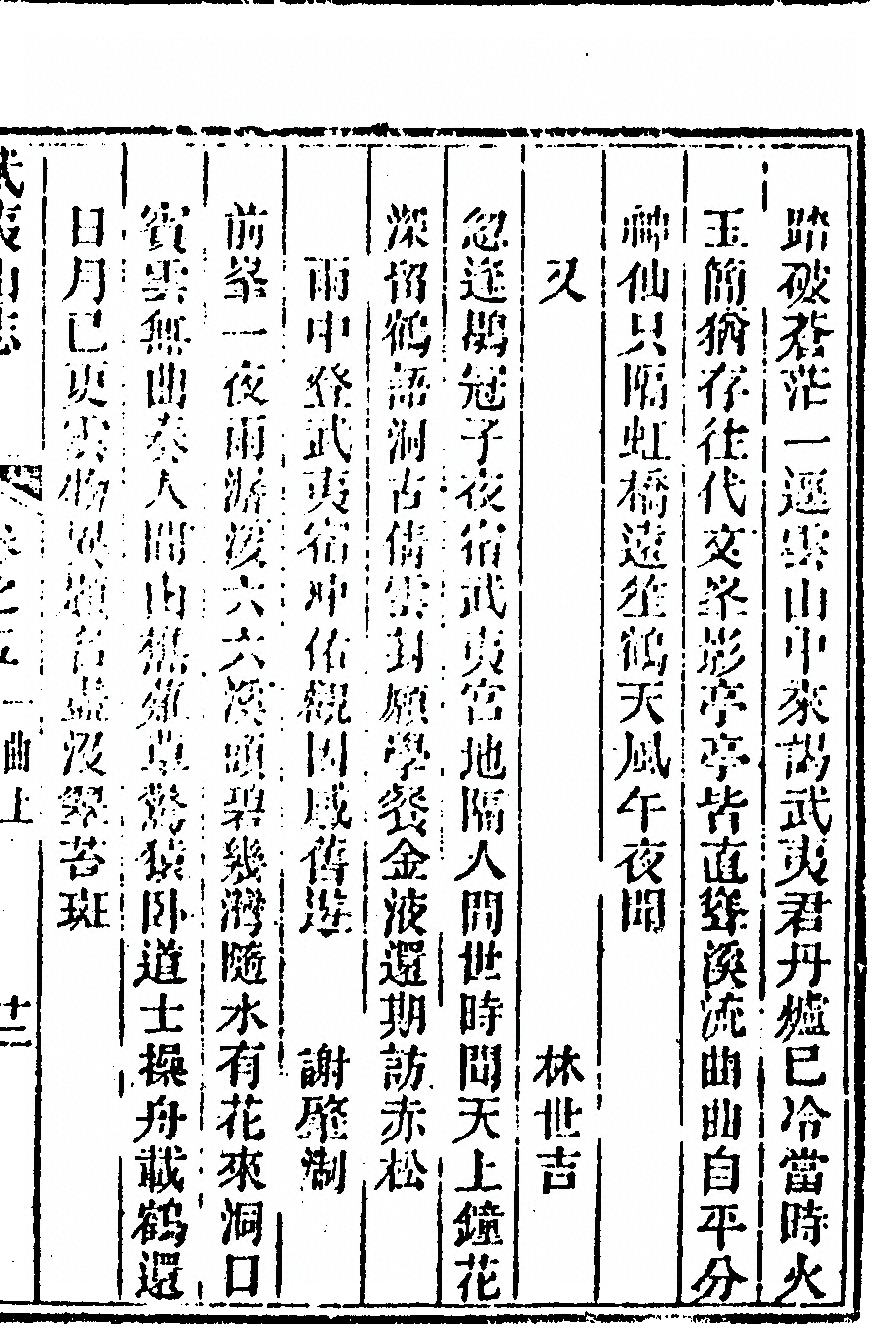 踏破蒼茫一逕雲山中來謁武夷君丹爐已冷當時火
玉簡猶存往代文峯影亭亭皆直聳溪流曲曲自平分
神仙只隔虹橋遠笙鶴天風午夜聞
又 林世吉
忽逢鶡冠子夜宿武夷宮地隔人間世時聞天上鐘花
深留鶴語洞古倩雲封願學餐金液還期訪赤松
雨中登武夷宿冲佑觀因感舊遊 謝肇淛
前峯一夜雨潺湲六六溪頭碧幾灣隨水有花來洞口
賓雲無曲奏人間山樵薙草驚猿卧道士操舟載鶴還
日月已更雲物異題名盡沒翠苔斑
武夷山志 卷之五 一曲上 十二